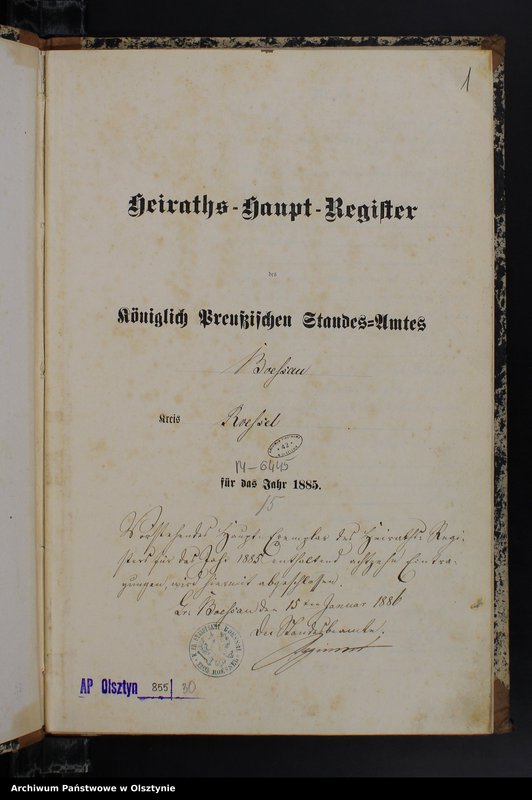 1
Heiraths-Haupt-Register
des
Königlich Preußischen Standes-Amtes
Boessau
Kreis Roessel
42
M-6445
für das Jahr 1885.
15
Vorstehendes Haupt-Exemplar des Heiraths-Regi-
sters für das Jahr 1885, enthaltend achtzehn Eintra-
gungen, wird hiermit abgeschlossen.
Gr. Boessau den 15ten Januar 1886
Der Standesbeamte.
AP Olsztyn 855 | 30
Archiwum Państwowe w Olsztynie